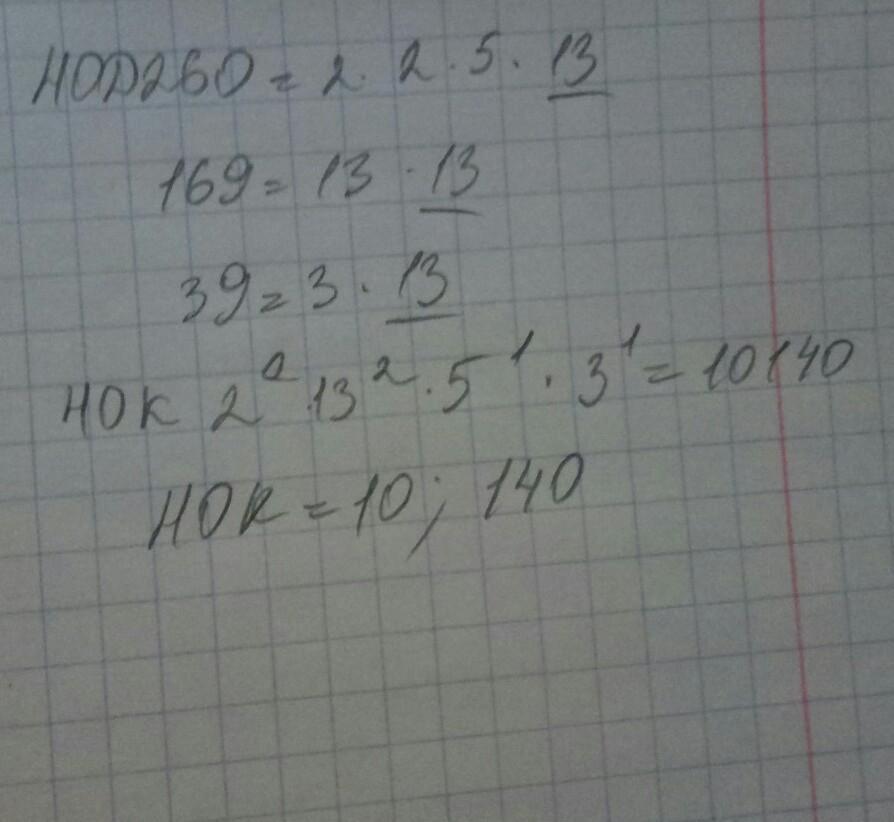 НОД260 = 2 · 2 · 5 · 13
169 = 13 · 13
39 = 3 · 13
НОК 2² · 13² · 5¹ · 3¹ = 10140
НОК = 10; 140